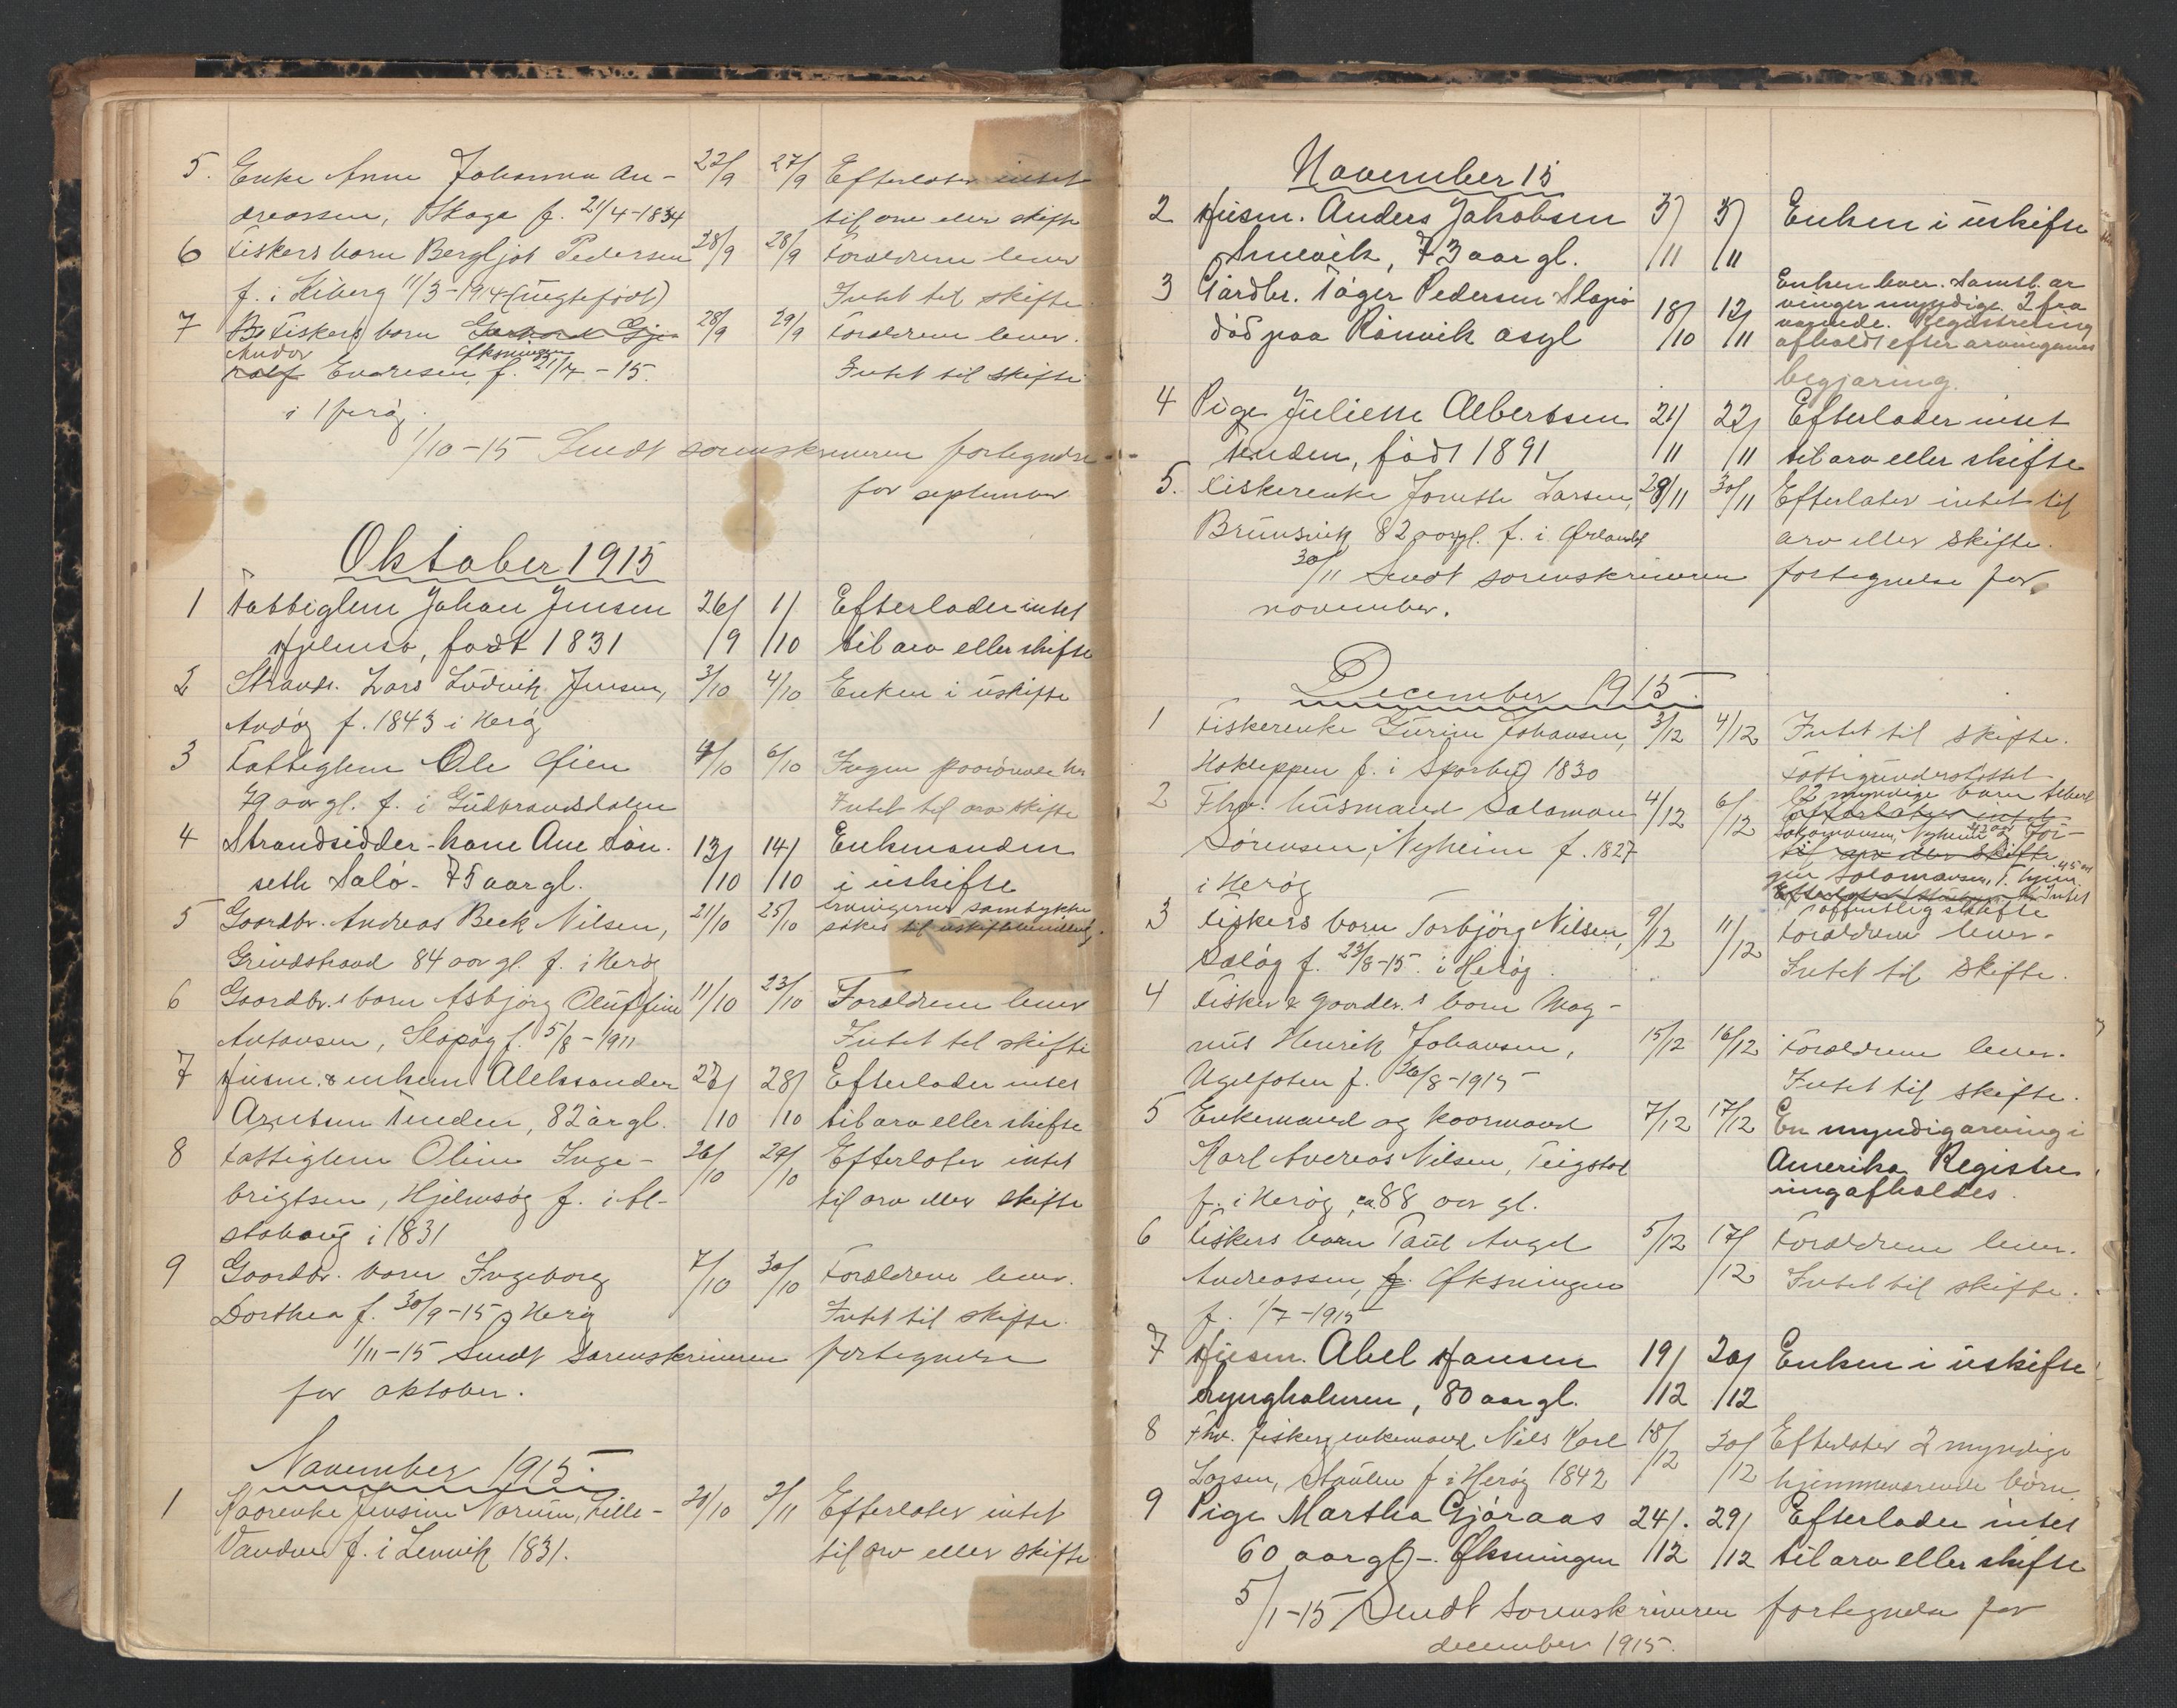 5. Enke Anne Johanna An- 22/9 27/9 Efterlater intet
dreassen, Skaga f. 21/4-1834 til arv eller skifte
6 Fiskers barn Bergljot Pedersen 28/9 28/9 Forældrene lever
f. i Kiberg 11/3-1914 (uegtefødt) Intet til skifte
7 Fiskers barn 28/9 29/9 Forældrene lever.
Andor Øksningen
Rolf Evaresen f. 21/4-15. Intet til skifte
i Herøy.
1/10-15 Sendt sorenskriveren fortegnelse
for september
Oktober 1915
1 Fattiglem Johan Jensen 26/9 1/10 Efterlader intet
Hjelmsø, født 1831 til arv eller skifte
2 Strands. Lars Ludvik Jensen, 3/10 4/10 Enken i uskifte
Andøy f. 1843 i Herøy
3 Fattiglem Ole Øien 4/10 6/10 Ingen paarørende her
79 aar gl. f. i Gudbrandsdalen Intet til arv skifte
4 Strandsidder-kone Ane Søn- 13/10 14/10 Enkemanden
seth Salø - 75 aar gl. i uskifte
5 Gaardbr. Andreas Beck Nilsen, 21/10 25/10 Arvingernes samtykke
søkes til uskiftebevilling.
Grindstrand 84 aar gl. f. i Herøy
6 Gaardbr.s barn Asbjørg Oluffine 11/10 23/10 Forældrene lever
Antonsen, Slapøy f. 5/8-1911 Intet til skifte
7 Husm. & enkem Aleksander 27/10 28/10 Efterlader intet
Arntsen Tenden, 82 år gl. til arv eller skifte
8 Fattiglem Oline Inge- 26/10 29/10 Efterlater intet
brigtsen, Hjelmsøy f. i Al- til arv eller skifte
stahaug i 1831
9 Gaardbr. barn Ingeborg 7/10 30/10 Forældrene lever.
Dorthea f. 30/9-15 i Herøy Intet til skifte.
1/11-15 Sendt sorenskriveren fortegnelse
for oktober.
November 1915.
1 Kaarenke Jensine Norum, Lille- 29/10 2/11 Efterlater intet
Vandve f. i Lenvik 1831. til arv eller skifte.
November 15
2 Husm. Anders Jakobsen 3/11 5/11 Enken i uskifte
Snevik, 73 aar gl.
3 Gårdbr. Tøger Pedersen Slapø 18/10 12/11 Enken lever. Samtl. ar
vinger myndige. 2 fra
død paa Rønvik asyl værende. Registrering
afholdt efter arvingenes
begjæring.
4 Pige Juliette Albertsen 21/11 22/11 Efterlader intet
Tenden, født 1891 til arv eller skifte
5. Fiskerenke Jonette Larsen, 29/11 30/11 Efterlater intet til
Brunsvik 82 aar gl. f. i Ørlandet arv eller skifte.
30/11 Sendt sorenskriveren fortegnelse for
november.
December 1915.
1 Fiskerenke Gurine Johansen, 3/12 4/12 Intet til skifte.
Hokleppen f. i Sparbu 1830 Fattigunderstøttet
2 Fhv. husmand Salamon 4/12 6/12 2 myndige barn Albert
Efterlater intet
Sørensen, Nyheim f. 1827 Salomonsen, Nyheim og Jør-
til arv eller skifte
i Herøy gen Salomonsen, 45 aar
Intet
offentlig skifte
3 Fiskers barn Torbjørg Nilsen, 9/12 11/12 Forældrene lever.
Saløy f. 23/8-15. i Herøy. Intet til skifte.
4 Fisker & gaardbr.s barn Mag-
nus Henrik Johansen, 15/12 16/12 Forældrene lever.
f. 26/8-1915 Intet til skifte.
5 Enkemand og kaarmand 7/12 17/12 En myndig arving i
Karl Andreas Nilsen, Teigstad Amerika Registre
f. i Herøy ca 88 aar gl. ring afholdes.
6 Fiskers barn Paul Angel 5/12 17/12 Forældrene lever.
Andreassen, f. Øksningen Intet til skifte.
f. 1/7-1915
7 Husm. Abel Hansen 19/12 20/12 Enken i uskifte
Lyngholmen, 80 aar gl.
8 Fhv. fisker, enkemand Nils Karl 18/12 30/12 Efterlater 2 myndige
Larsen, Staulen f. i Herøy 1842 hjemmeværende børn
9 Pige Martha Gjøraas 24/12 29/12 Efterlader intet
60 aar gl - Øksningen til arv eller skifte
5/1-15 Sendt sorenskriveren fortegnelse for
december 1915.